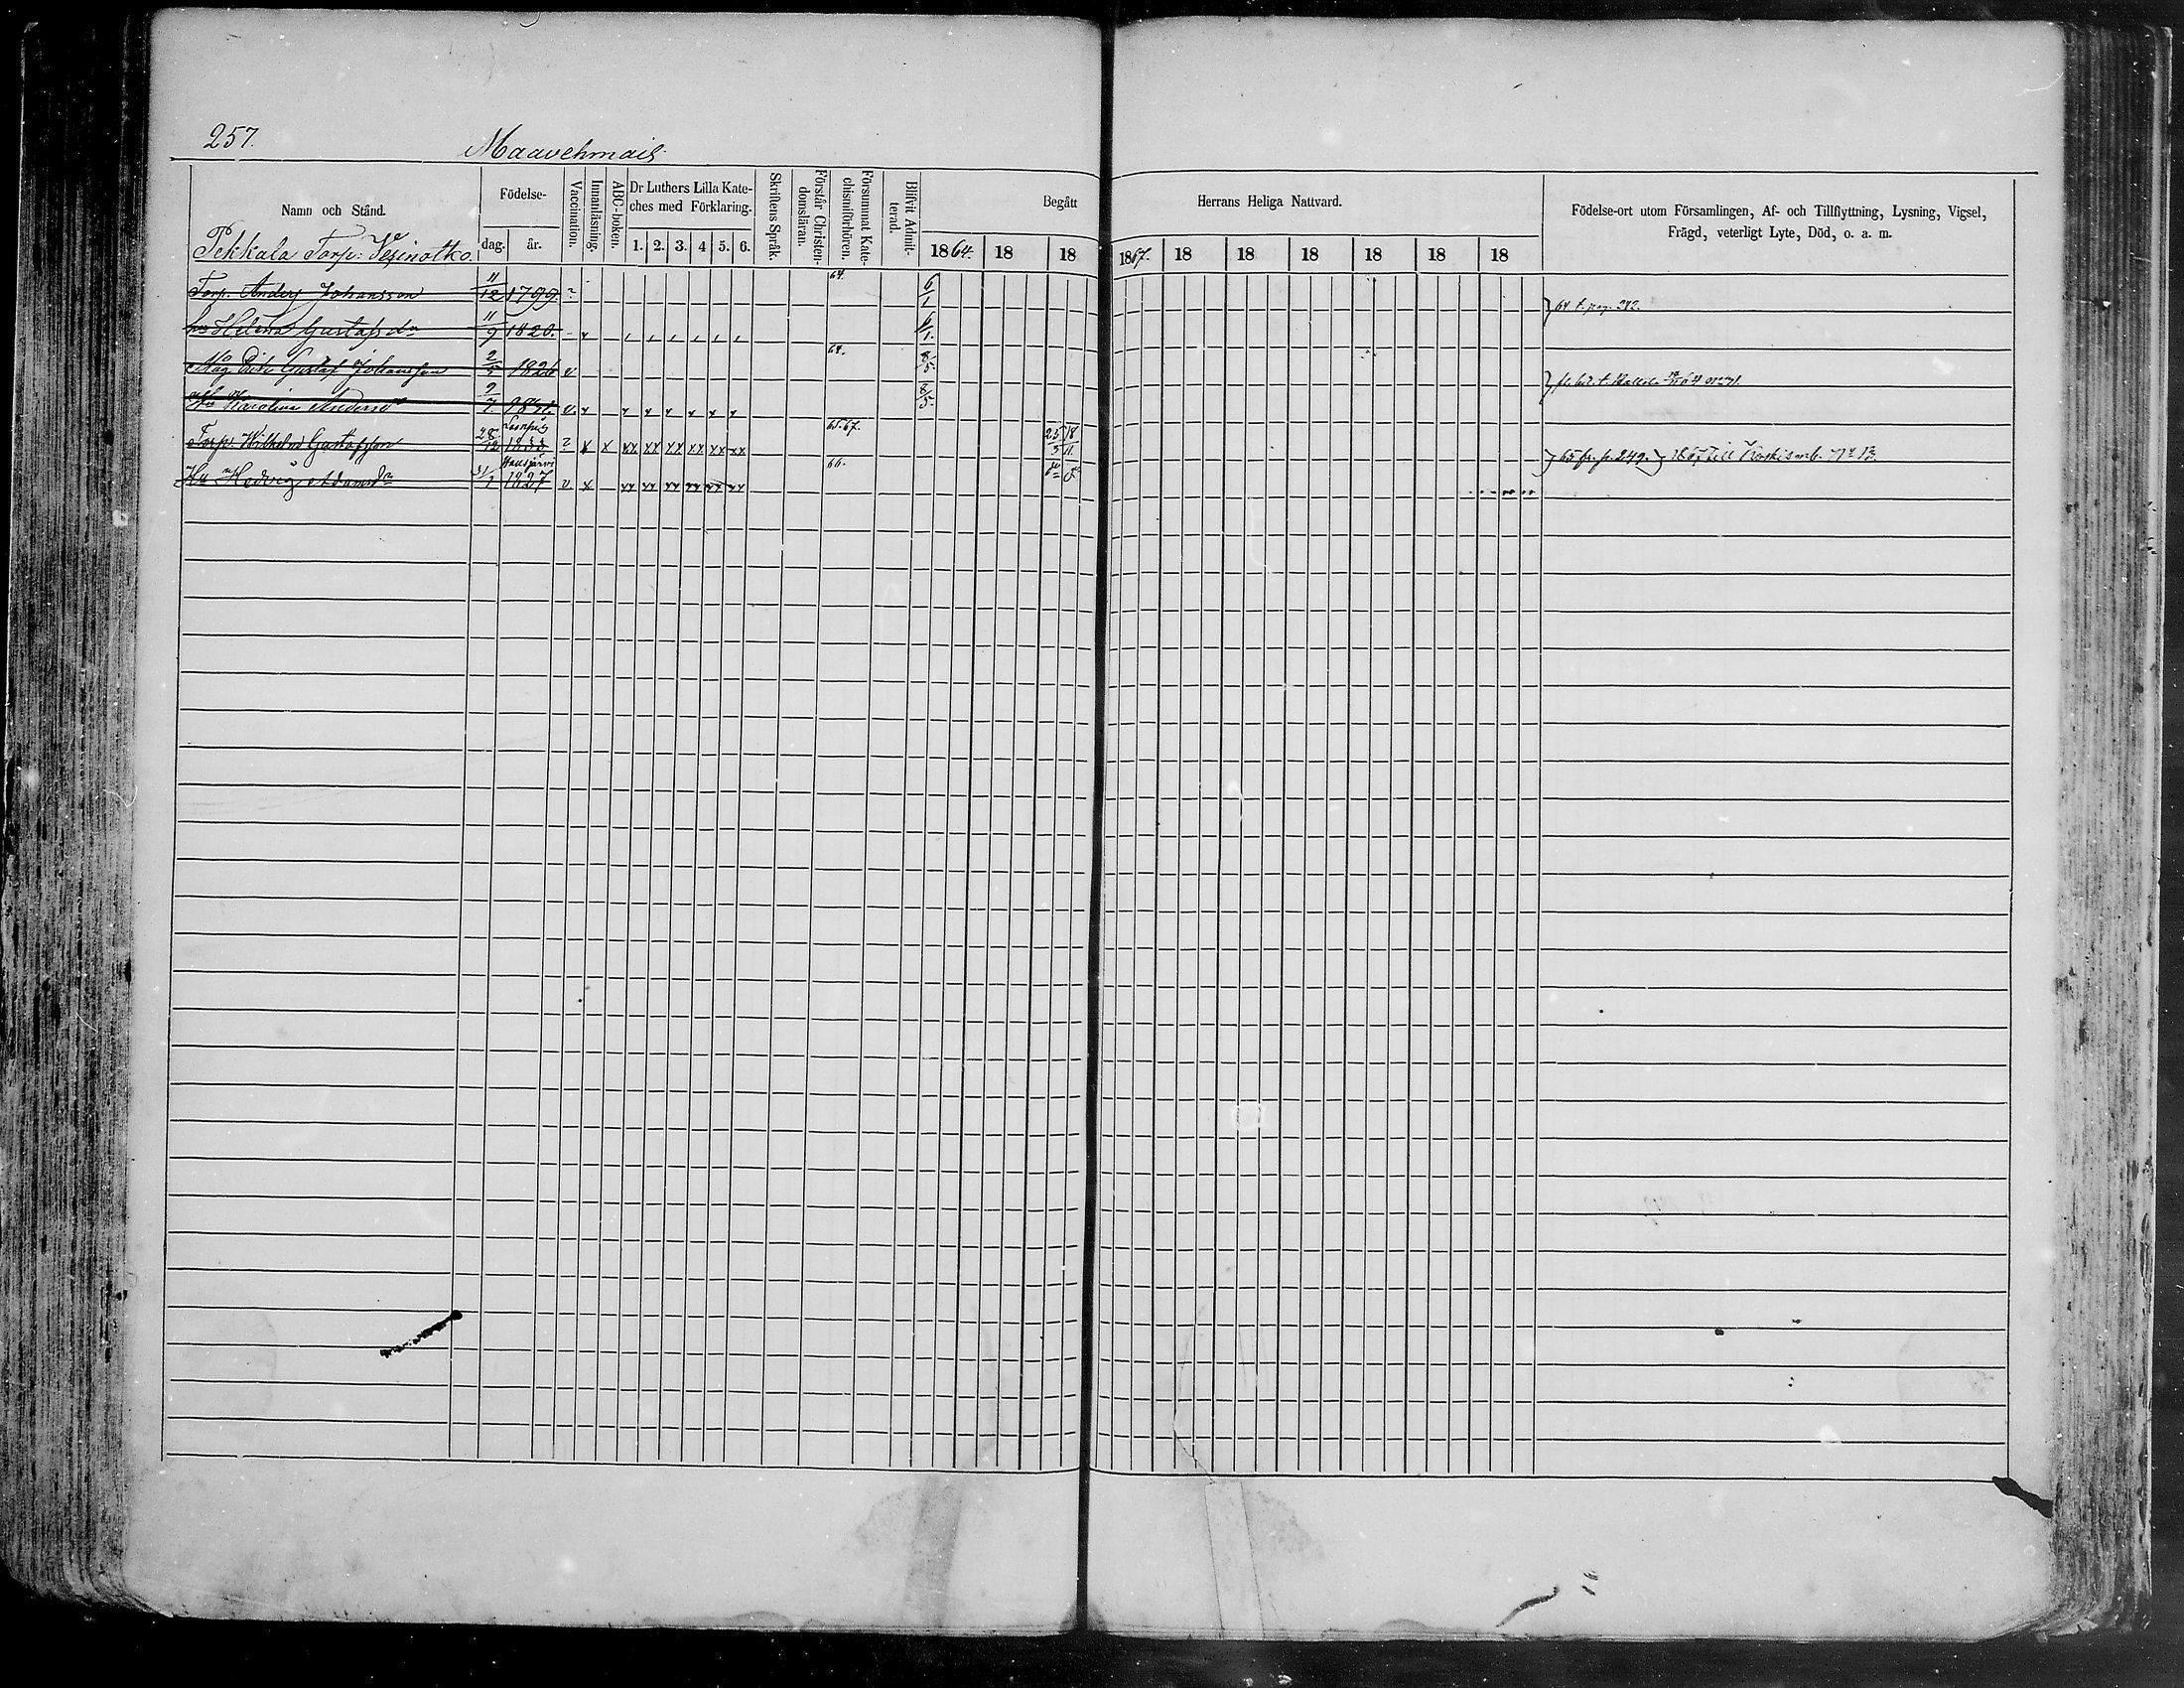 257.
Maavehmais
Namn och Stånd.
Födelse-
dag.
år.
Vaccination.
Innanläsning.
ABC-boken.
Dr Luthers Lilla Kate-
ches med Förklaring.
1. 2. 3. 4 5. 6.
Skriftens Språk.
Förstår Christen-
domsläran.
Försummat Kate-
chismiförhören.
Blifvit Admit-
terad.
Begått
Herrans Heliga Nattvard.
1864. 18 18 1867. 18 18 18 18 18 18
Födelse-ort utom Församlingen, Af- och Tillflyttning, Lysning, Vigsel,
Frägd, veterligt Lyte, Död, o. a. m.
Pekkala Torp: Vesinotko
Torp. Anders Johansson 11/12 1799. ? 64. 6/1
64 t. pag. 242.
Helena Gustafsdr 11/9 1820. 6/1.
Gustaf Johansson 2/5 1826 v 64. 8/5.
Karolina Andersdr 2/7. v. 8/5.
Torp. Wilhelm Gustafsson 28/12 ? 65. 67. 25/5 18/11.
65 fr. p. 249. 1867 till
Hausjärvi
Hu Hedvig Adamsdr 31/1 1827 v. 66.